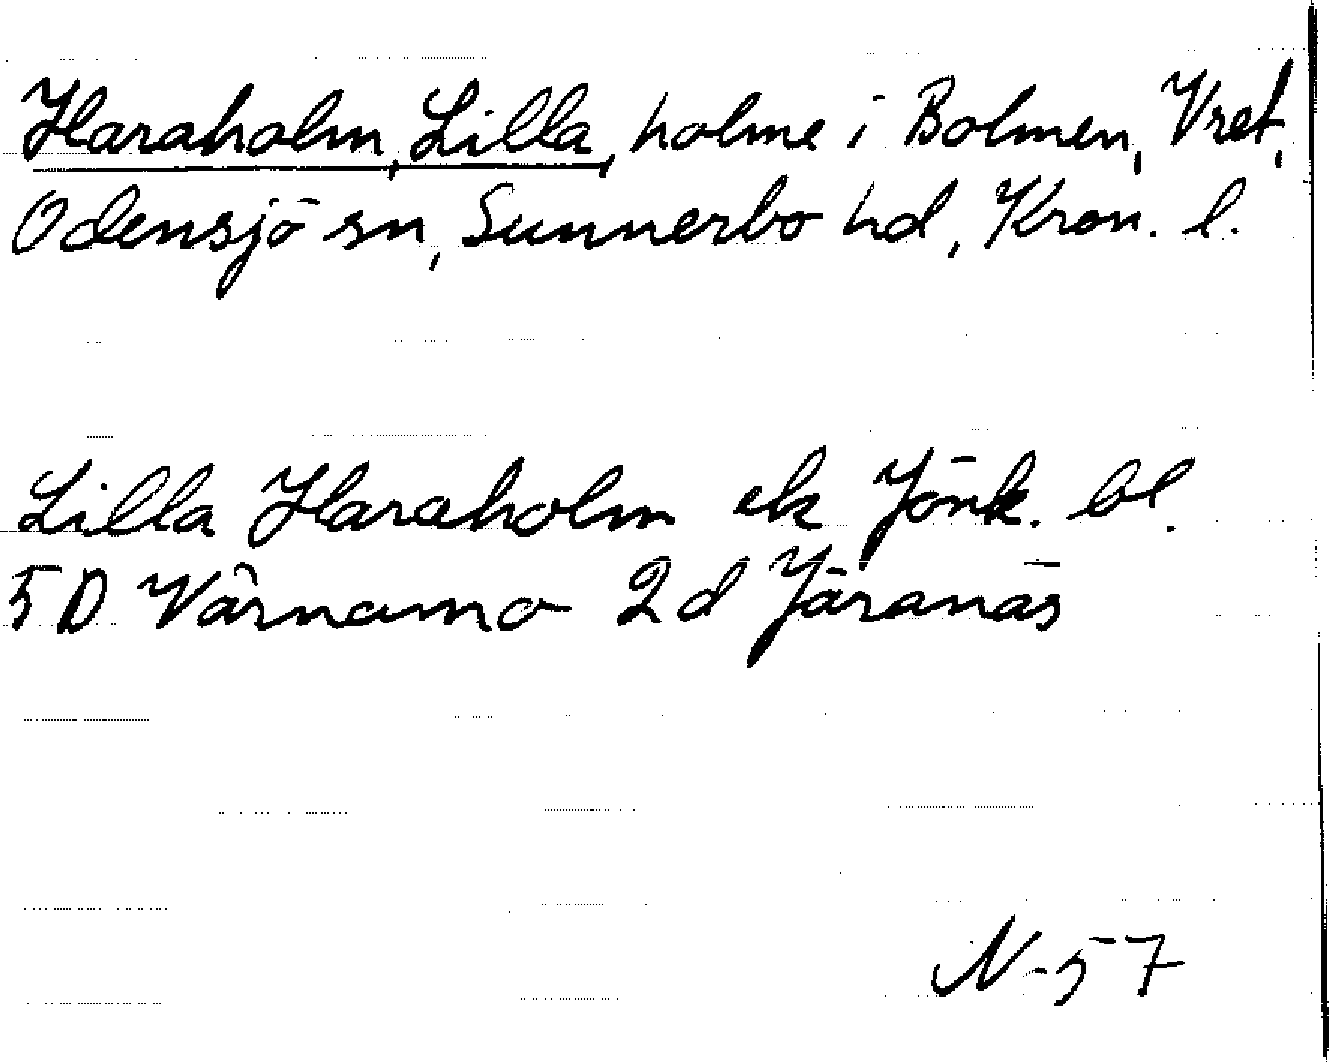 Haraholm, Lilla, holme i Bolmen, Vret,
Odensjö sn, Sunnerbo hd, Kron. l.
Lilla Haraholm ek Jönk. bl.
5D Värnamo 2d Järanäs
N-57